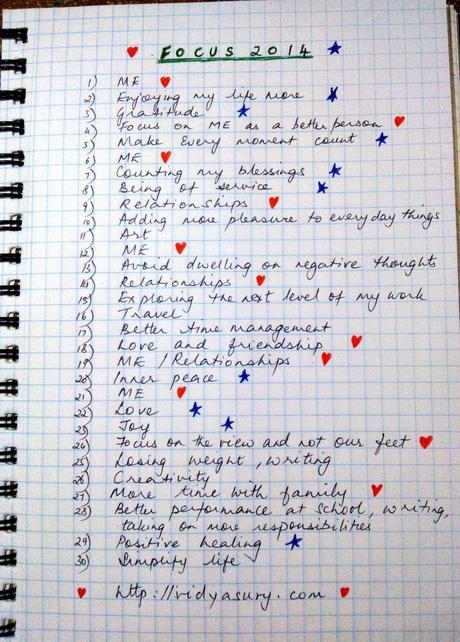 FOCUS 2014
1) ME
2) Enjoying my life more
3) Gratitude
4) Focus on ME as a better person
5) Make Every moment count
6) ME
7) Counting my blessings
8) Being of service
9) Relationships
10) Adding more pleasure to everyday things
11) Art
12) ME
13) Avoid dwelling on negative thoughts
14) Relationships
15) Exploring the next level of my work
16) Travel
17) Better time management
18) Love and friendship
19) ME / Relationships
20) Inner peace
21) ME
22) Love
23) Joy
24) Focus on the view and not our feet
25) Losing weight, writing
26) Creativity
27) More time with family
28) Better performance at school, writing,
taking on more responsibilities
29) Positive healing
30) Simplify life
http://vidyasury.com